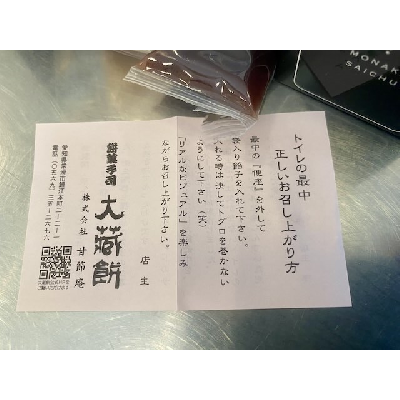 トイレの最中
正しいお召し上がり方
最中の『便座』を外して
袋入り餡子を入れて下さい。
入れる時は決してトグロを巻かない
ようにして下さい（笑）
『リアルなビジュアル』を楽しみ
ながらお召し上がり下さい。
店主
御菓子司
大蔵餅
株式会社 甘節庵
愛知県常滑市鯉江本町
MONAKA
SAICHU